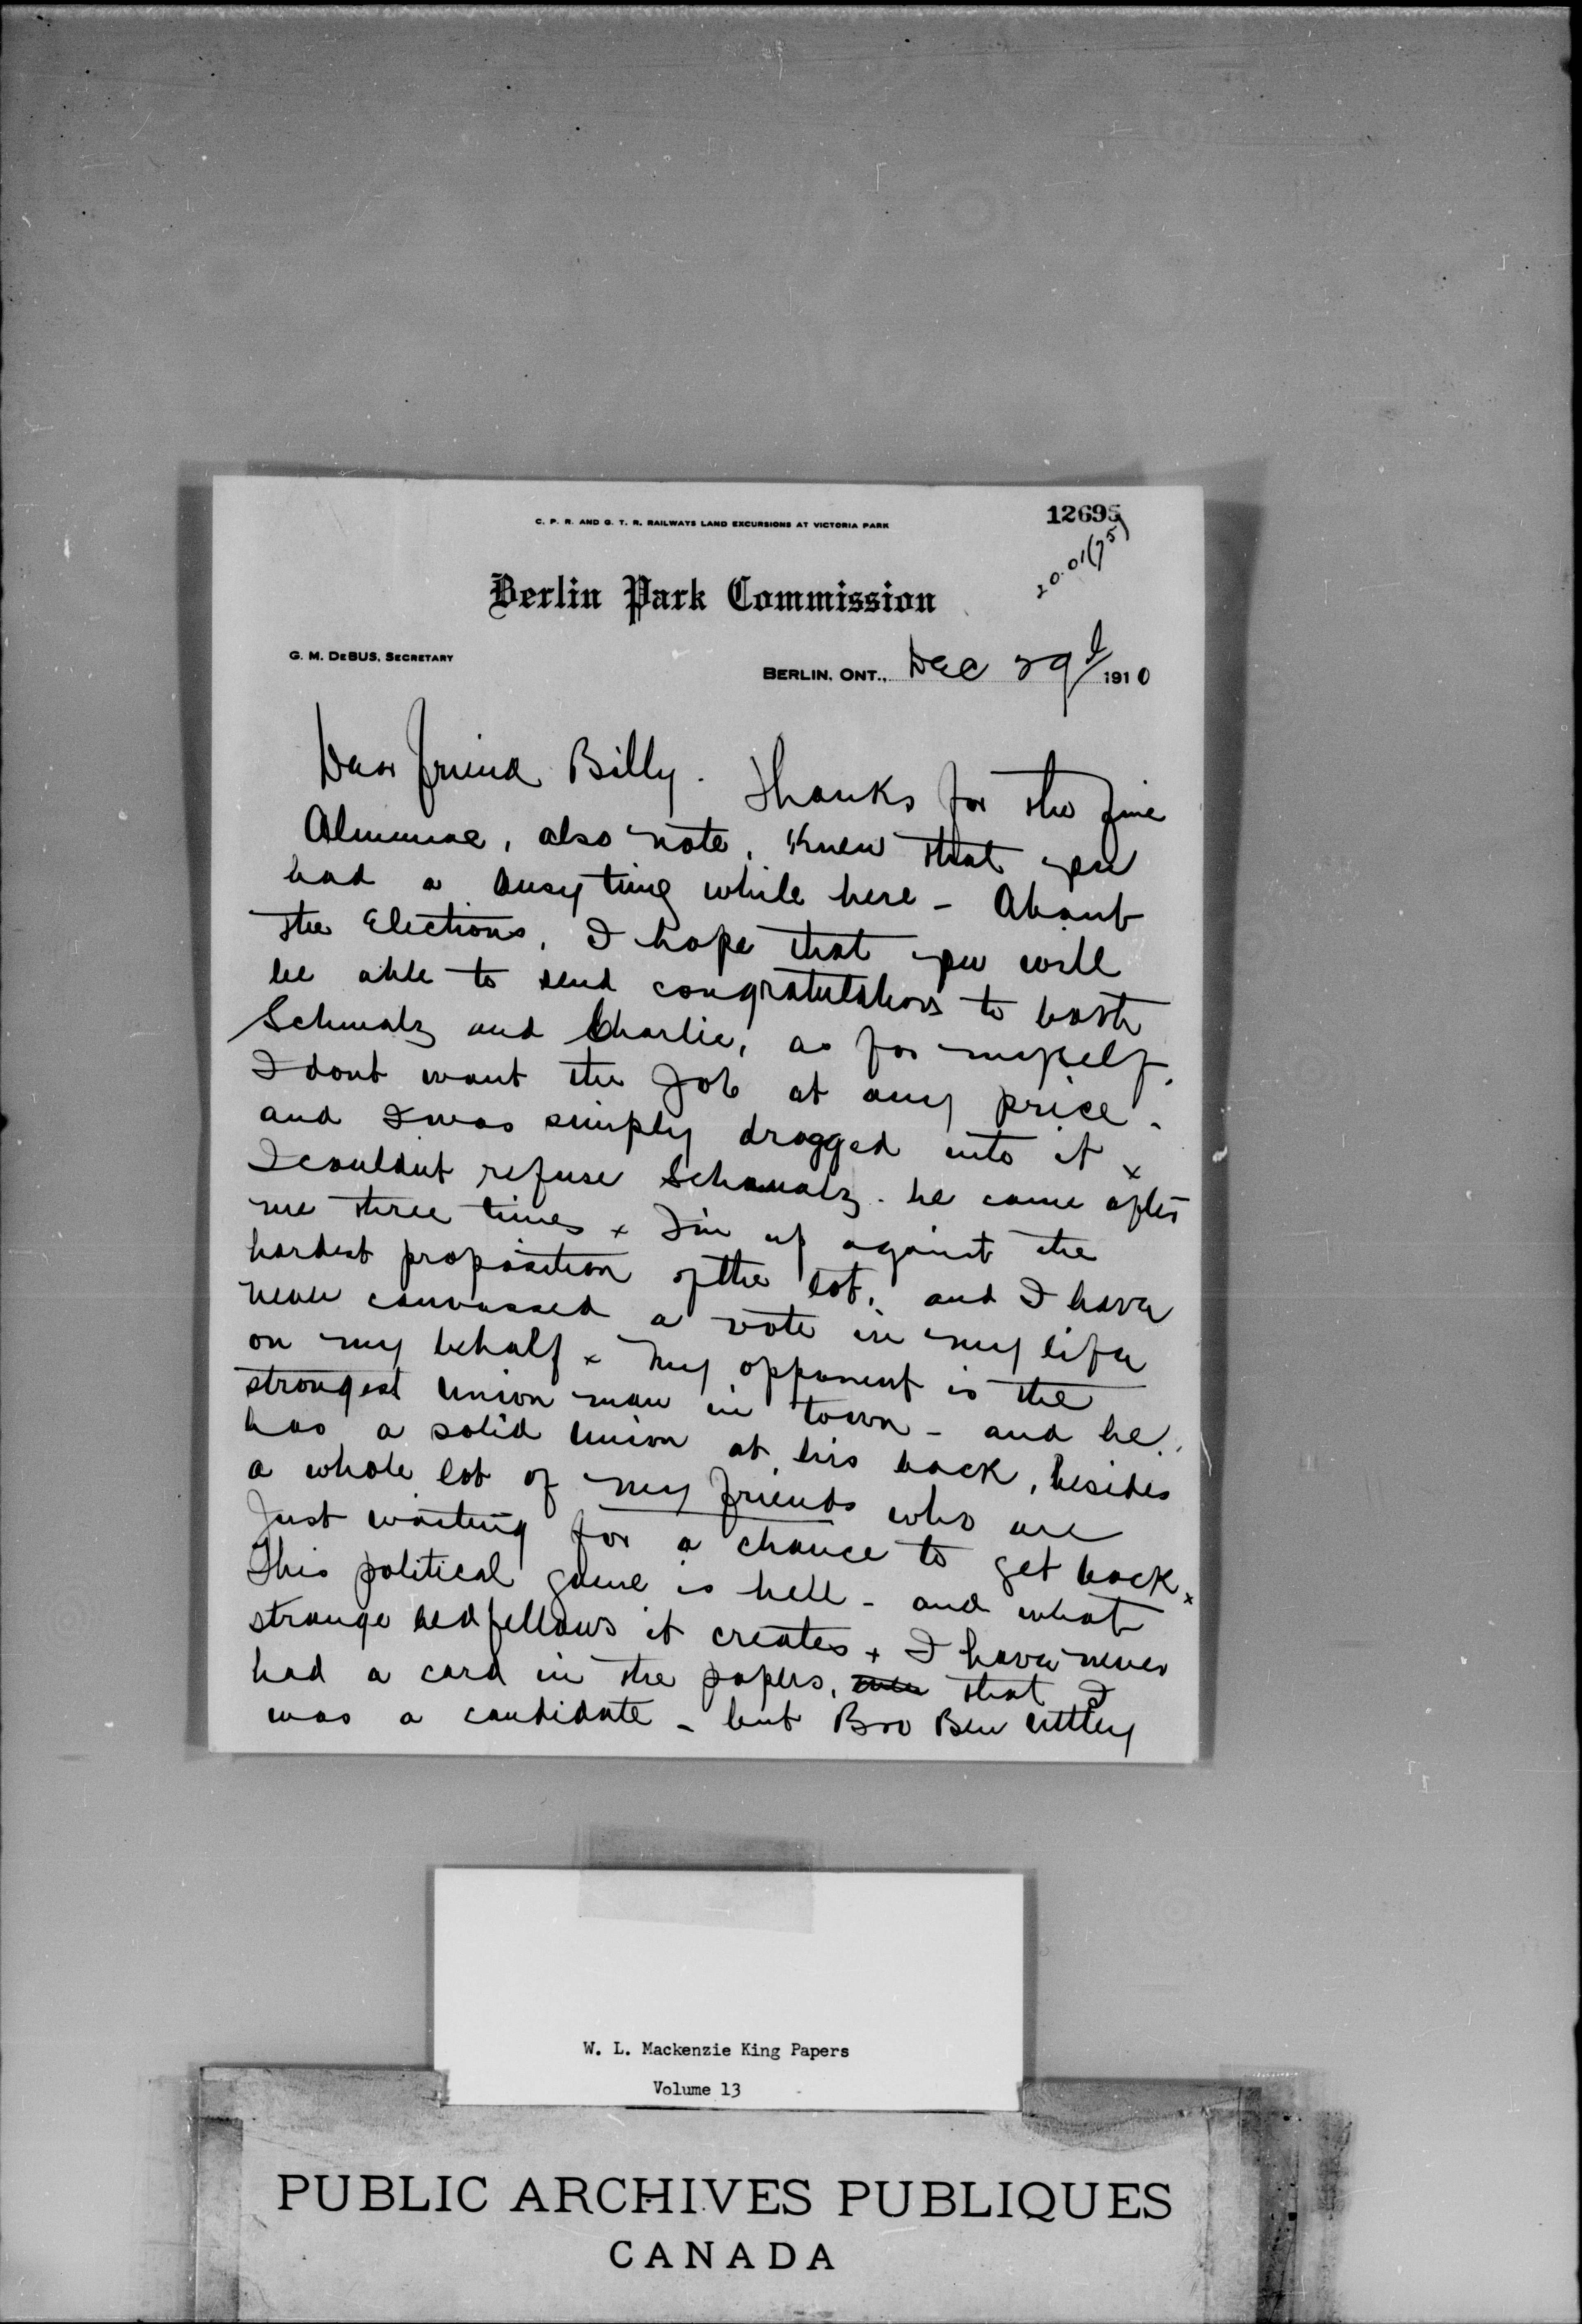 C. P. R. AND G. T. R. RAILWAYS LAND EXCURSIONS AT VICTORIA PARK
12695
20.01(75)
Berlin Park Commission
G. M. DEBUS, SECRETARY
BERLIN, ONT., Dec 29th 1910
Dear friend Billy. Thanks for the fine
Almanac, also note. Knew that you
had a busy time while here - About
the Elections, I hope that you will
be able to send congratulations to both
Schmalz and Charlie, as for myself.
I dont want the Job at any price.
and I was simply dragged into it x
I couldnt refuse Schmalz. he came after
me three times x I'm up against the
hardest proposition of the lot, and I have
never canvassed a vote in my life
on my behalf x My opponent is the
strongest Union man in town - and he
has a solid Union at his back, besides
a whole lot of my friends who are
Just waiting for a chance to get back x
This political game is hell - and what
strange bedfellows it creates x I have never
had a card in the papers, that I
was a candidate - but Bro Ben Uttley
W. L. Mackenzie King Papers
Volume 13
PUBLIC ARCHIVES PUBLIQUES
CANADA